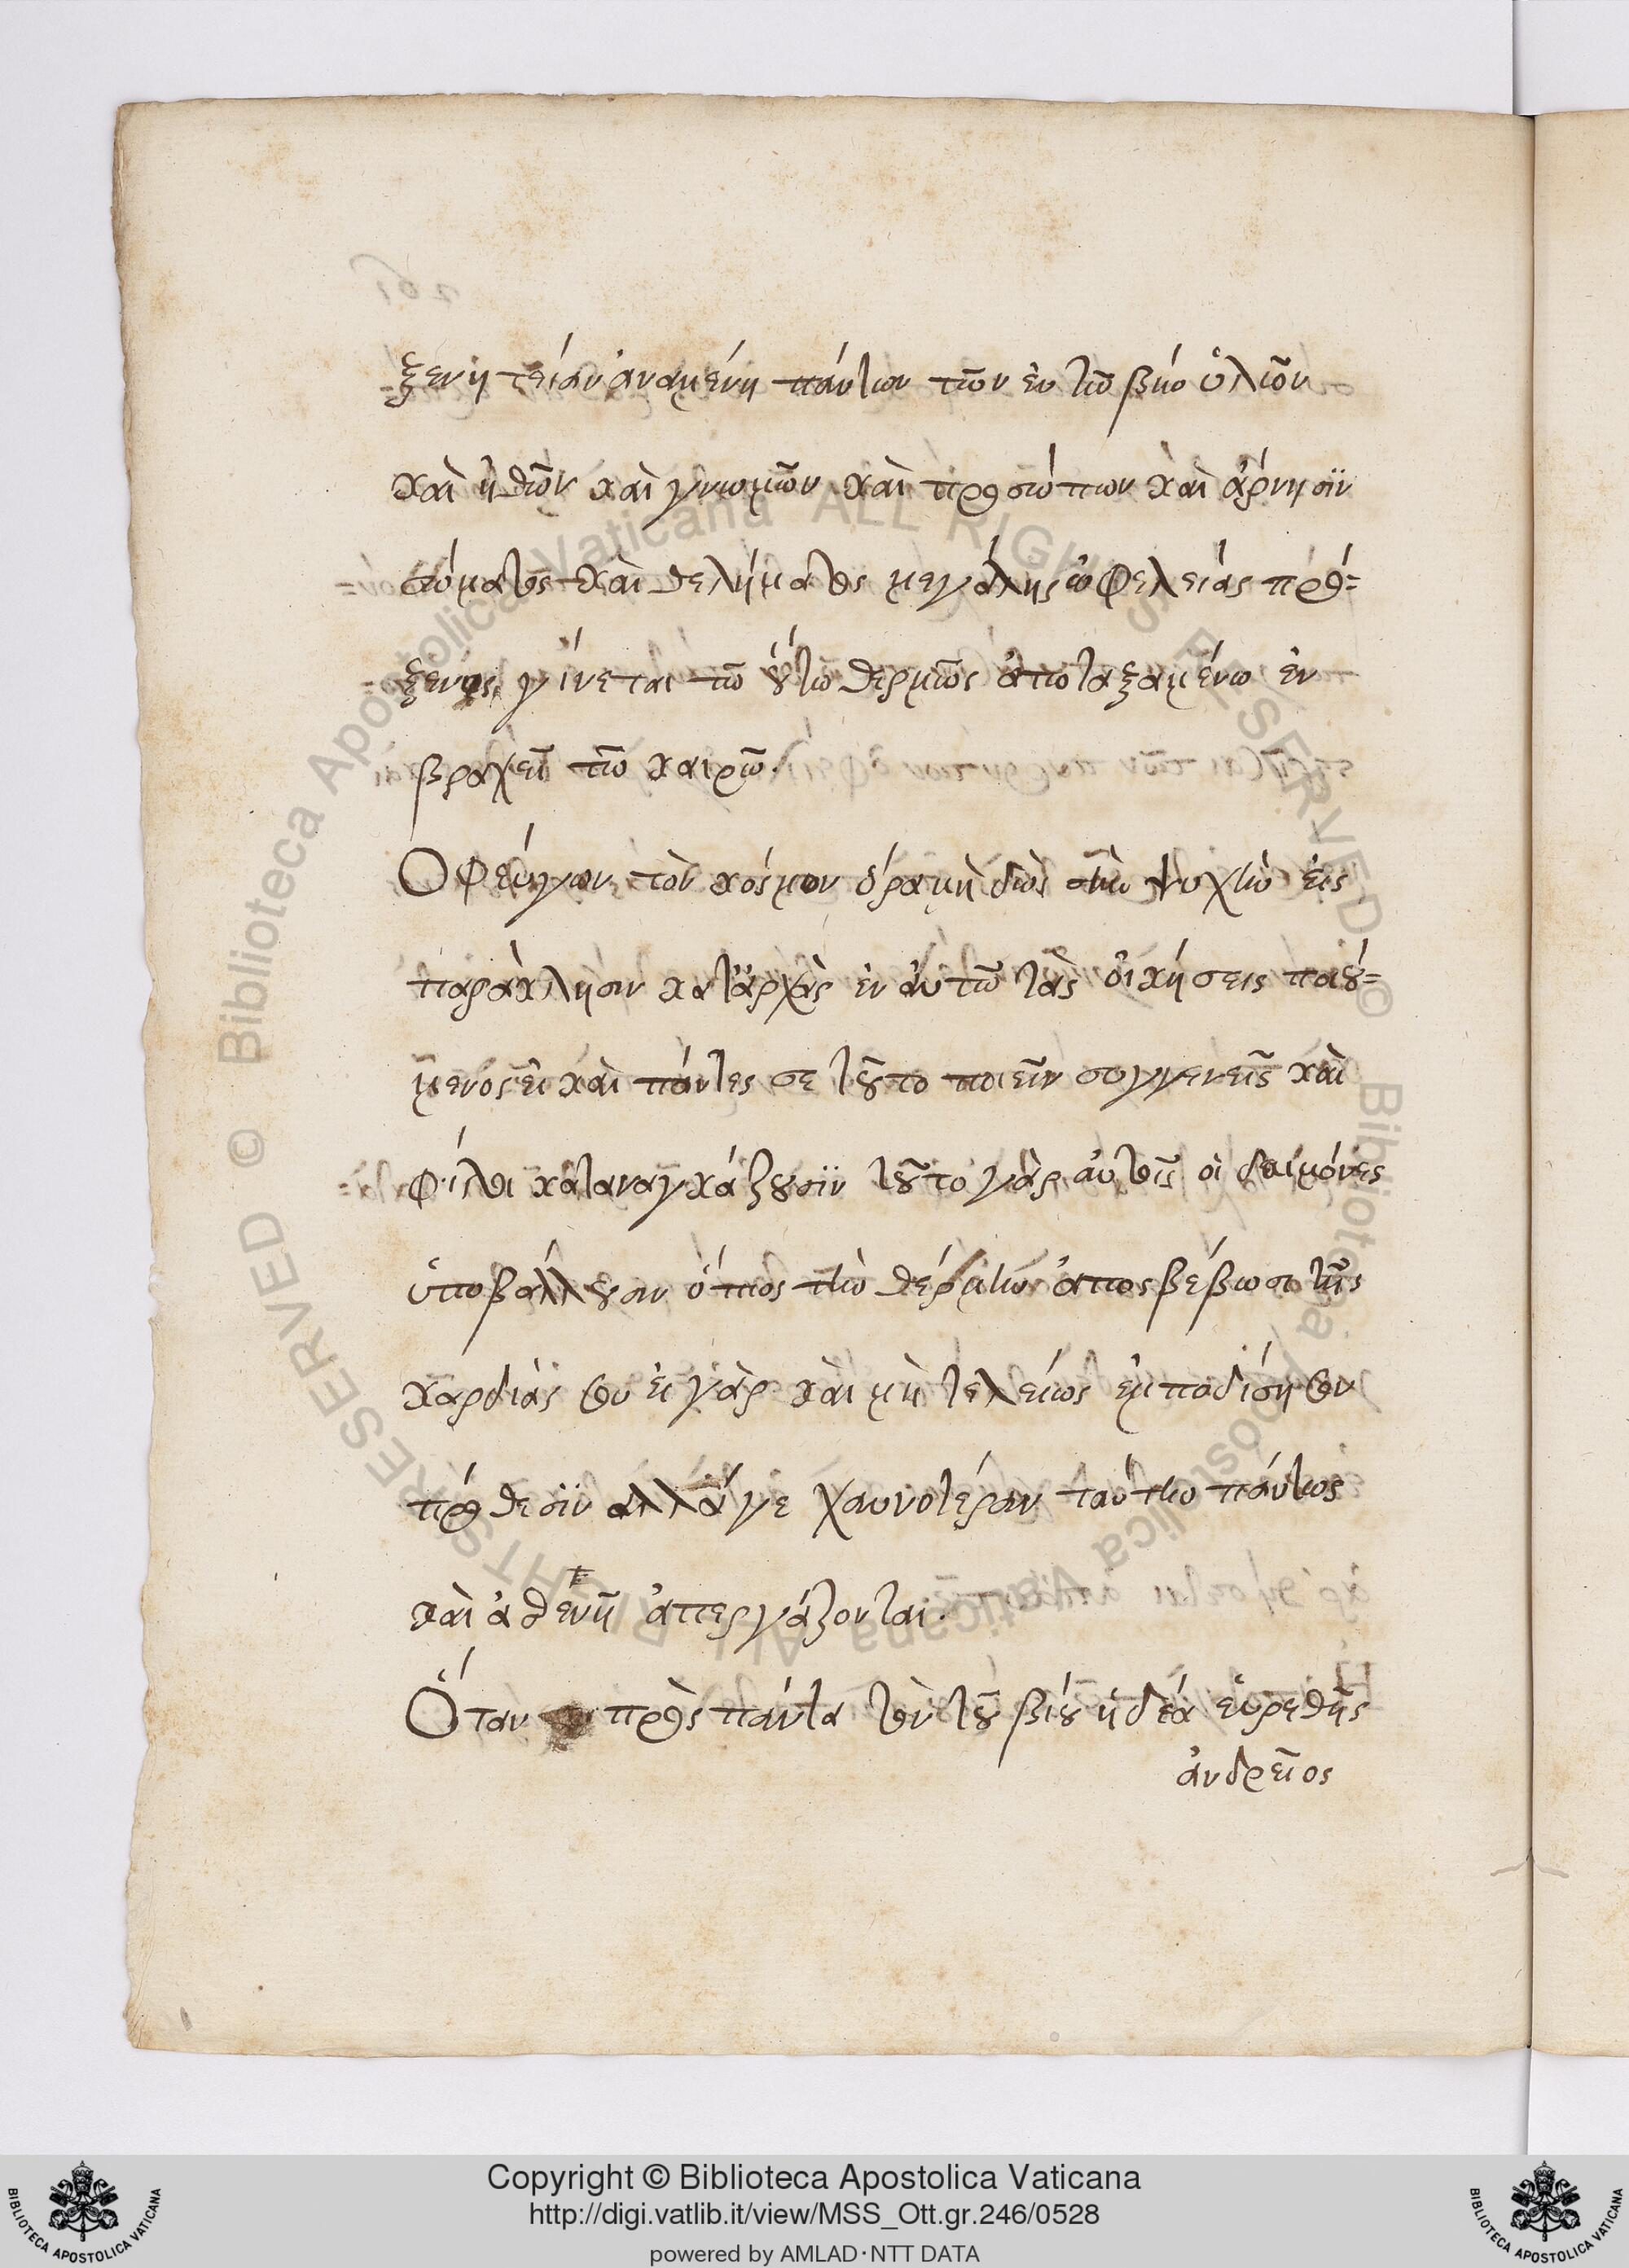 ξενητείαν ἀναμένη πάντων τῶν ἐν τῶ βίω ὑλῶν
καὶ ἠθῶν καὶ γνωμῶν καὶ προσώπων καὶ ἄρνησϊν
σώματος καὶ θελήματος μεγάλης ὠφελείας πρό=
ξενος γίνεται τῶ οὕτω θερμῶς ἀποταξαμένω ἐν
βραχεῖ τῶ καιρῶ.
Ὁ φεύγων τὸν κόσμον ὅρα μὴ δῶς τὴν ψυχὴν εἰς
παράκλησιν κατ' ἀρχὰς ἐν αὐτῶ τὰς οἰκήσεις ποιού=
μενος εἰ καὶ πάντες σε τοῦτο ποιεῖν συγγενεῖς καὶ
φίλοι καταναγκάζουσϊν τοῦτο γὰρ αὐτοῖς οἱ δαίμόνες
ὑποβάλλουσιν ὅπως τὴν θέρμην ἀποσβέσωσι τῆς
καρδίας σου εἰ γὰρ καὶ μὴ τελείως ἐμποδίση σου
πρόθεσϊν ἀλλά γε χαυνοτέραν ταύτην πάντως
καὶ ἀθενῆ ἀπεργάζονται.
Ὅταν πρὸς πάντα τὸν τοῦ βίου ἡδέα εὑρεθῆς
ἀνδρεῖος
Copyright © Biblioteca Apostolica Vaticana
http://digi.vatlib.it/view/MSS_Ott.gr.246/0528
powered by AMLAD·NTT DATA
BIBLIOTECA APOSTOLICA VATICANA
BIBLIOTECA APOSTOLICA VATICANA